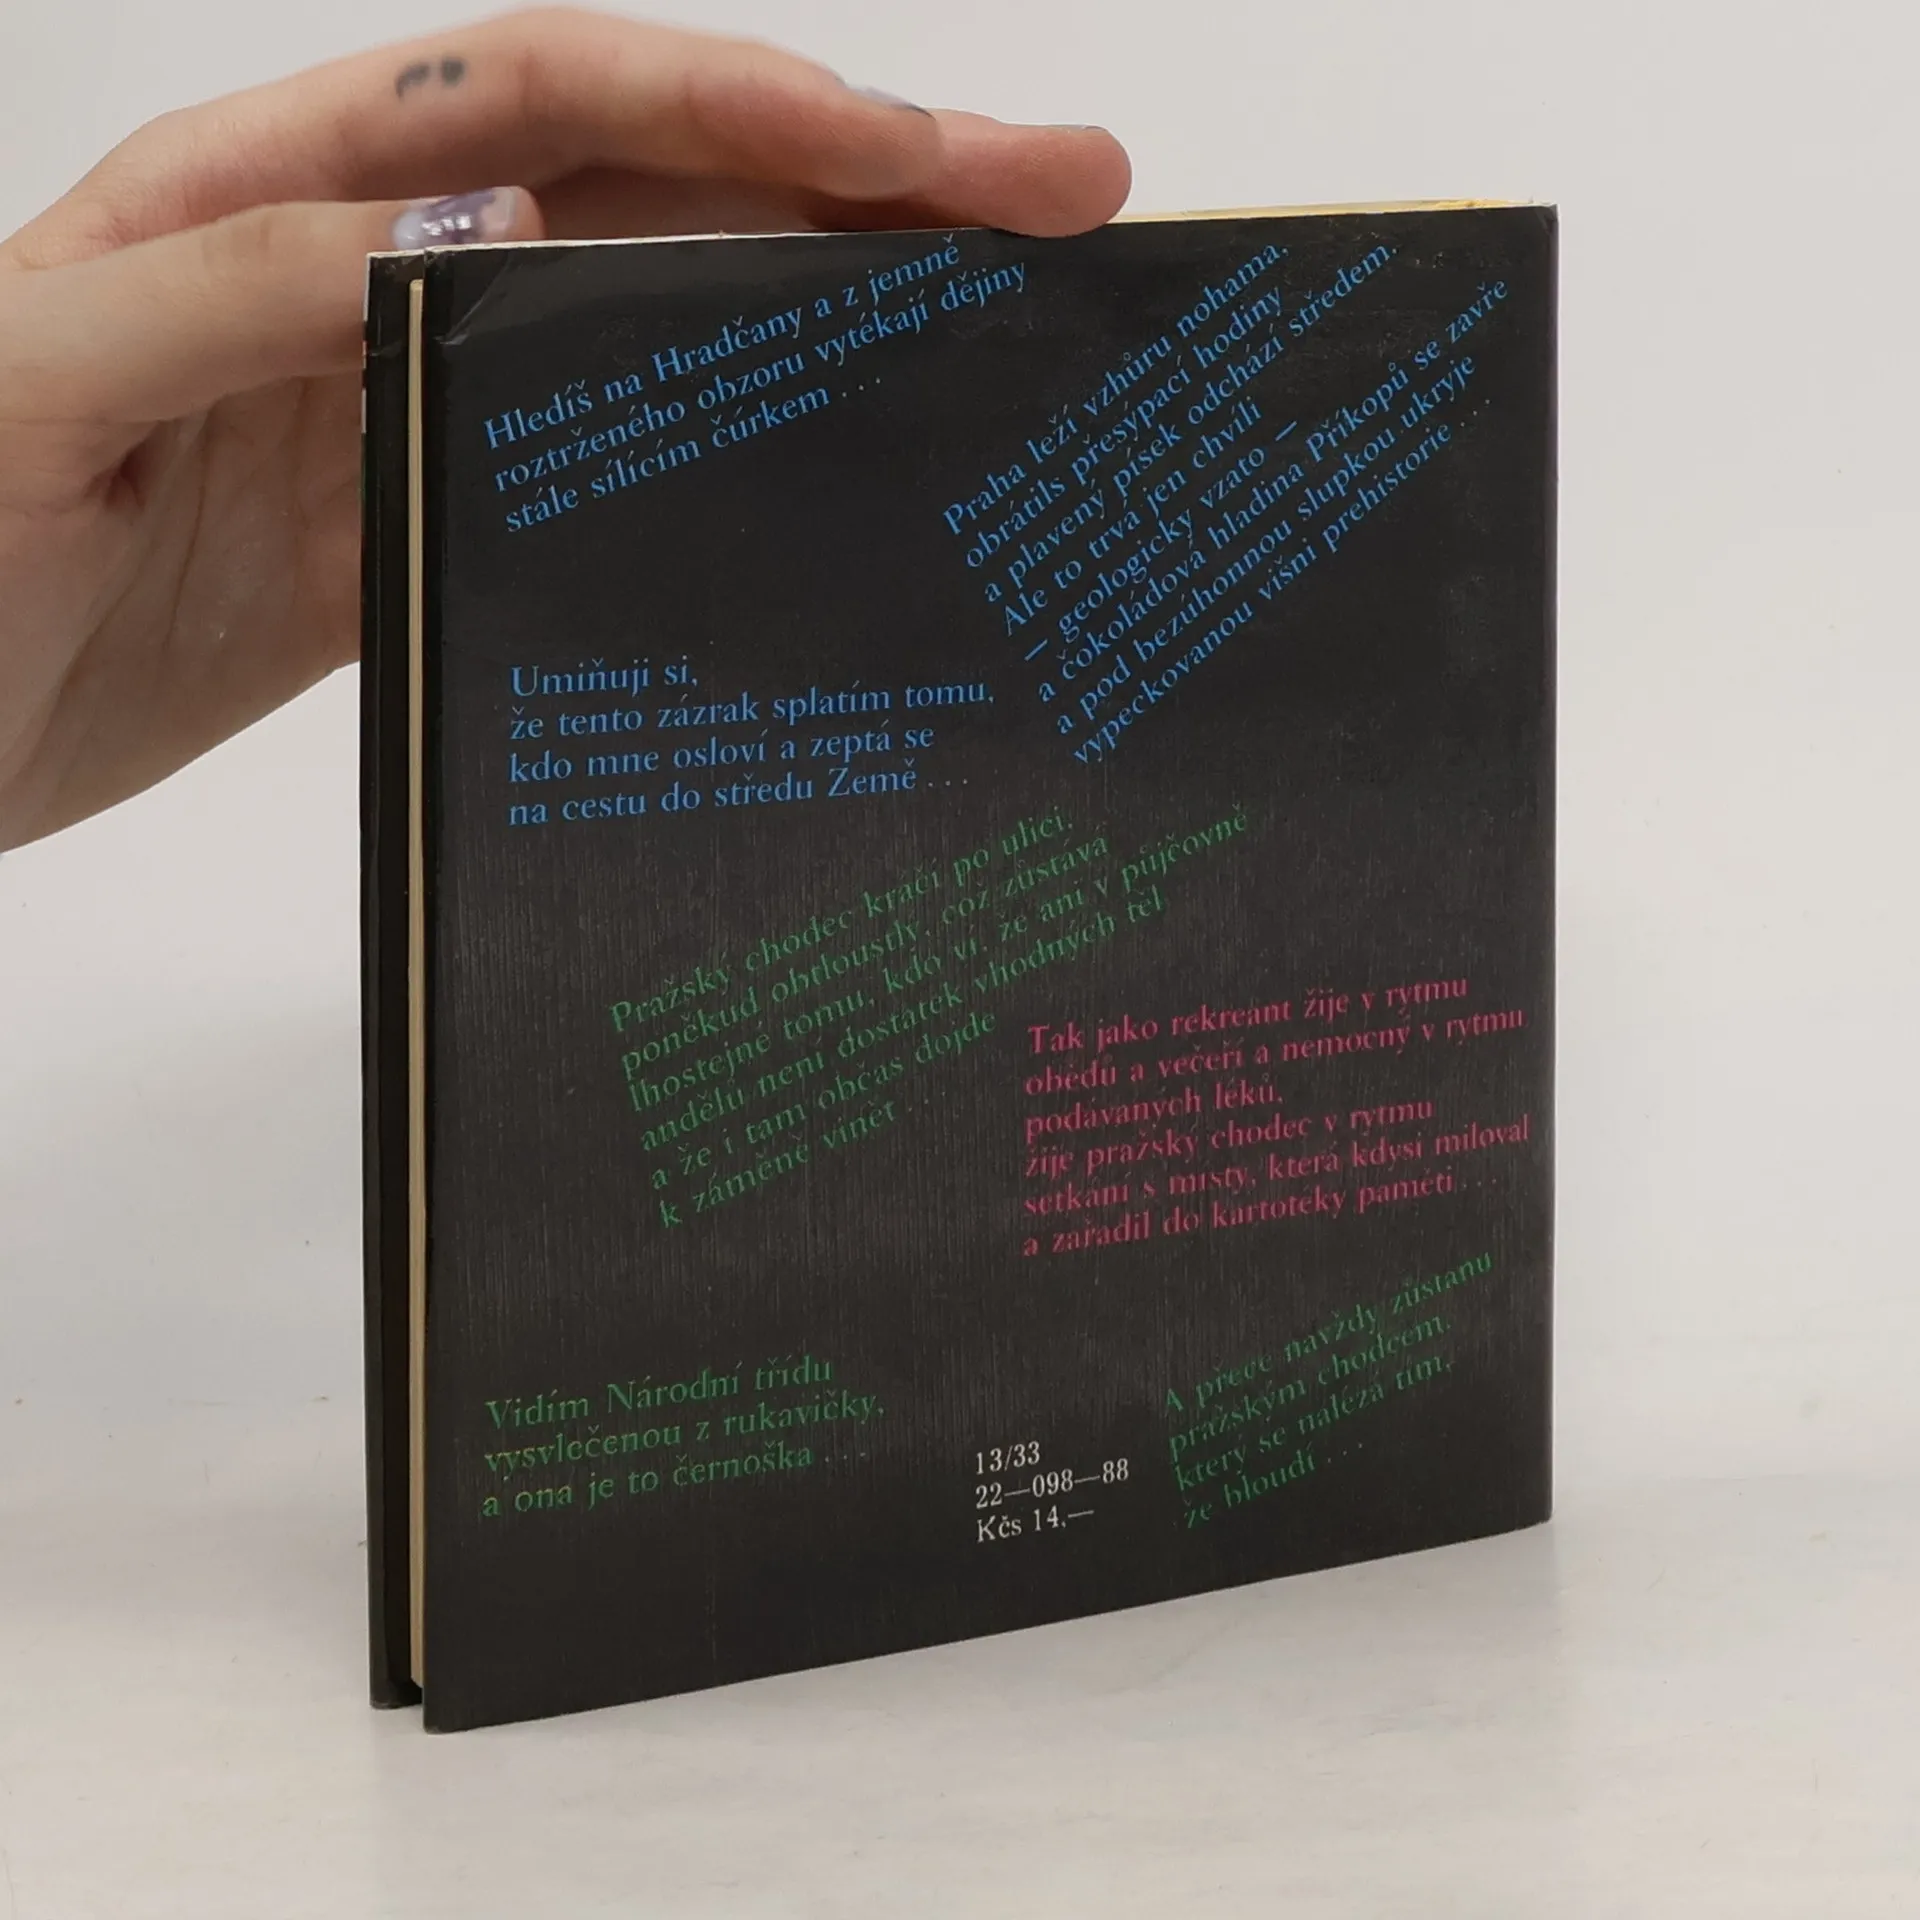 Hledíš na Hradčany a z jemně
roztrženého obzoru vytékají dějiny
stále sílícím čúrkem...
Praha leží vzhůru nohama,
obrátils přesýpací hodiny
a plavený písek odchází středem.
Ale to trvá jen chvíli
— geologicky vzato —
a čokoládová hladina Příkopů se zavře
a pod bezúhonnou slupkou ukryje
vypeckovanou višni prehistorie...
Umiňuji si,
že tento zázrak splatím tomu,
kdo mne osloví a zeptá se
na cestu do středu Země...
Pražský chodec kráčí po ulici,
poněkud obtloustlý, což zůstává
lhostejné tomu, kdo ví, že ani v půjčovně
andělů není dostatek vhodných těl
a že i tam občas dojde
k záměně vinět...
Tak jako rekreant žije v rytmu
obědů a večeří a nemocný v rytmu
podávaných léků,
žije pražský chodec v rytmu
setkání s místy, která kdysi miloval
a zařadil do kartotéky paměti...
Vidím Národní třídu
vysvlečenou z rukavičky,
a ona je to černoška...
A přece navždy zůstanu
pražským chodcem,
který se nalézá tím,
že bloudí...
13/33
22—098—88
Kčs 14,—